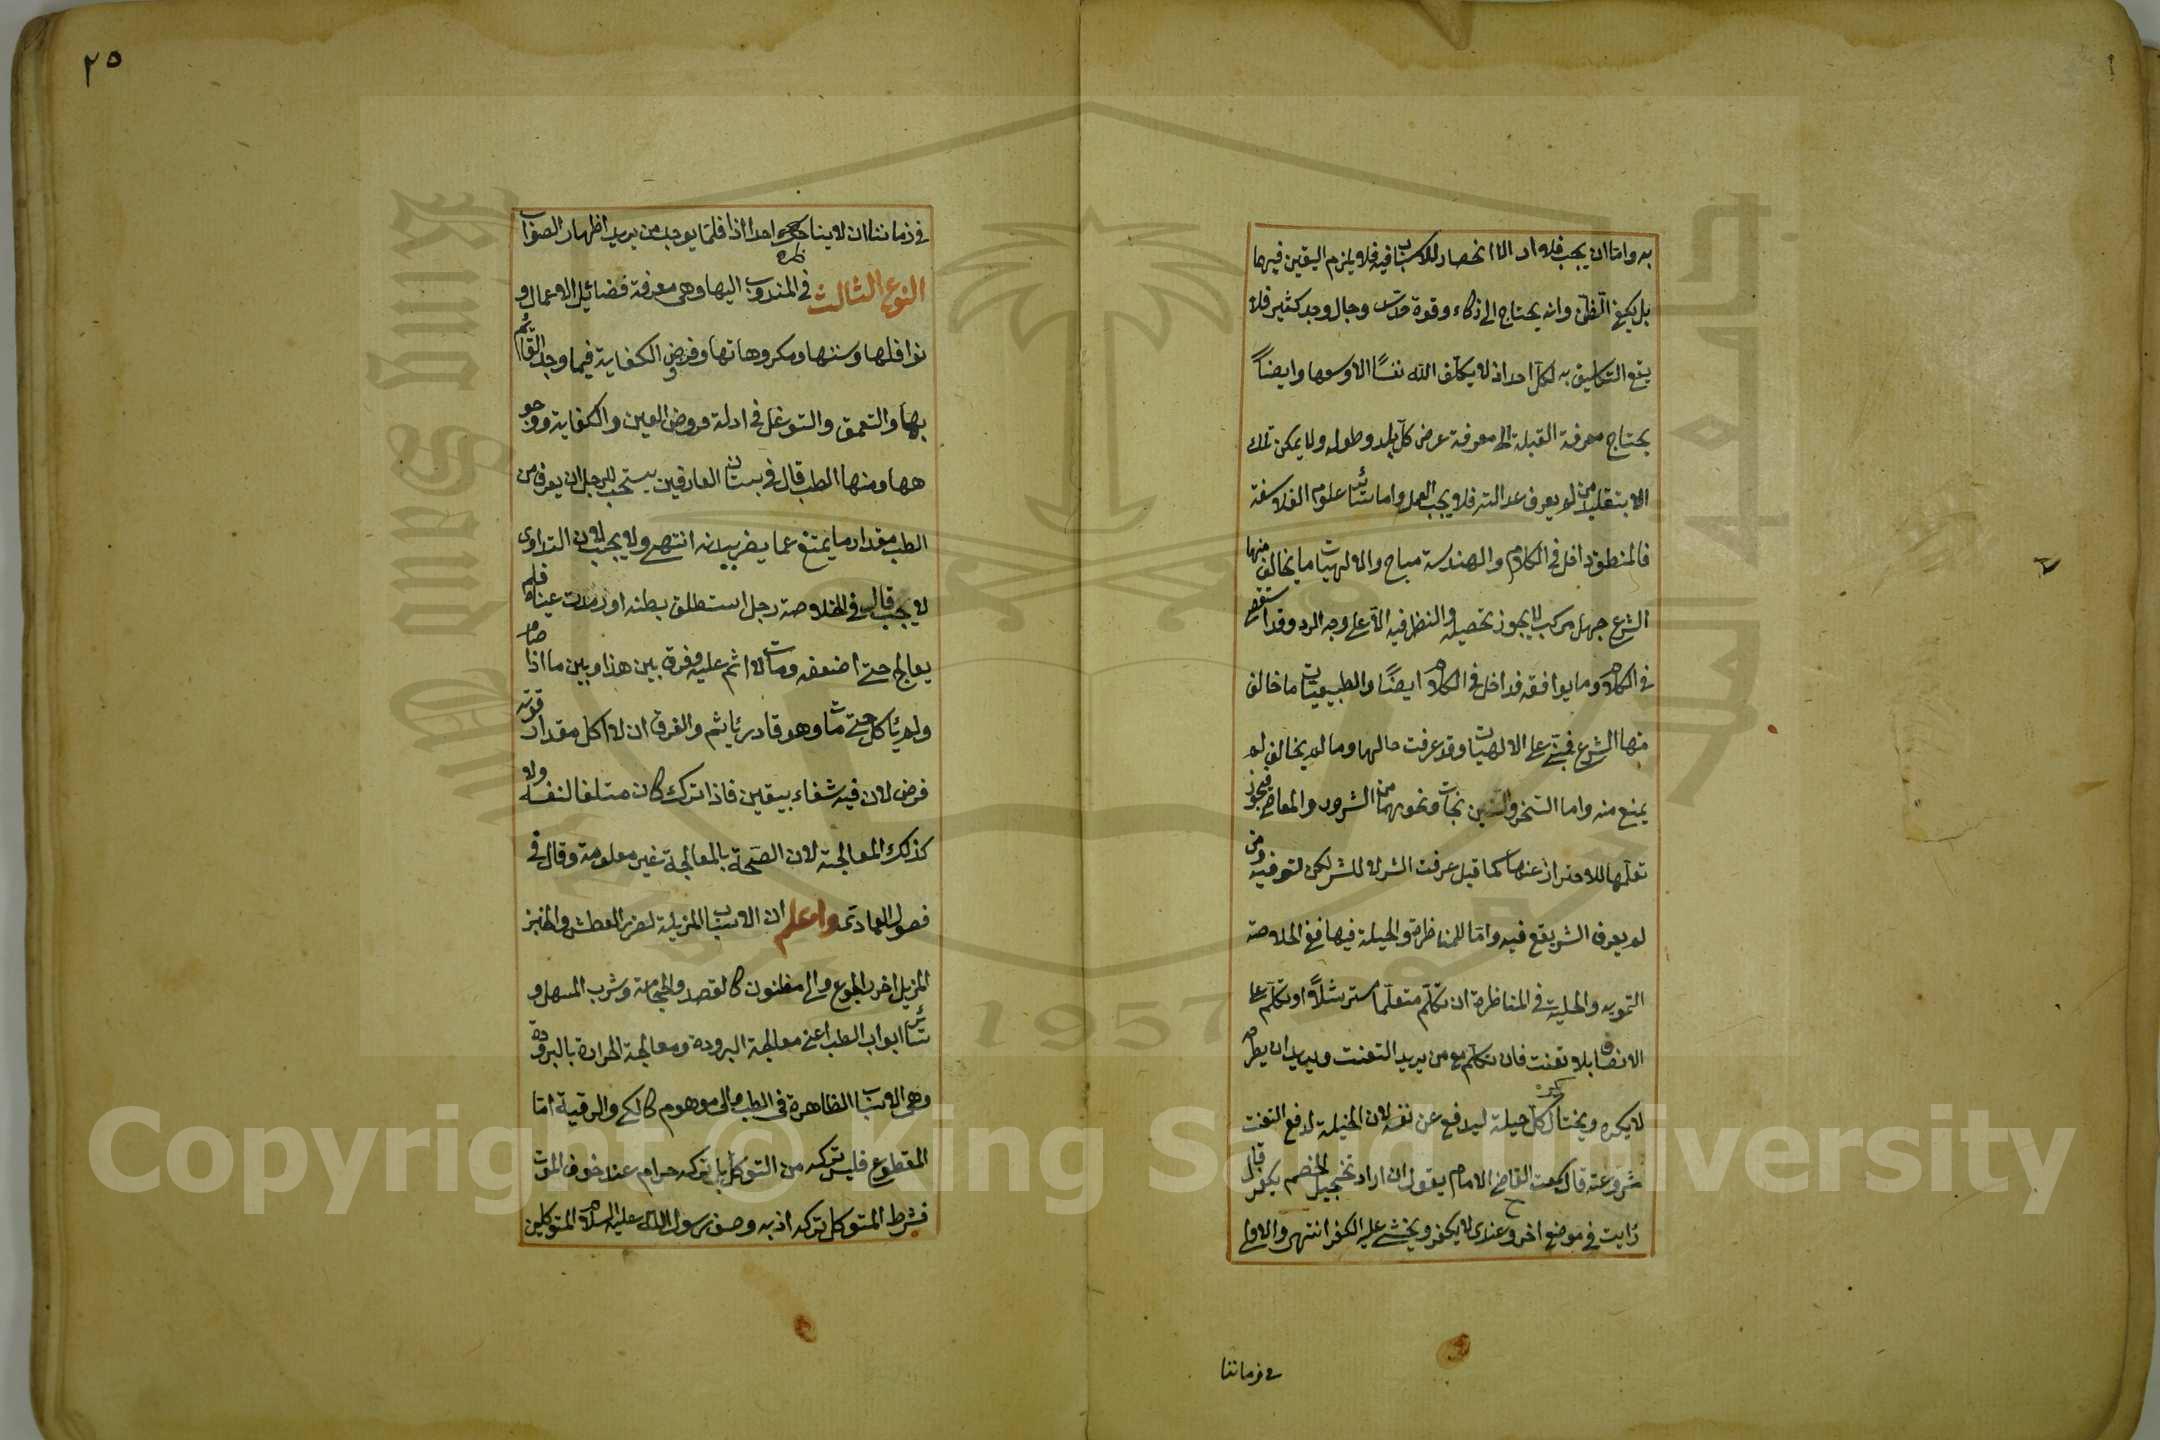 به واما ان يجب فلا اذ لا انحصار للاسباب فيه فلا يلزم اليقين فيهما
بل يكفي الظن وانه يحتاج الى ذكاء وقوة حدس وجال وجد كثير فلا
يقع التكليف به لكل احد اذ لا يكلف الله نفسًا الا وسعها وايضاً
يحتاج معرفة القبلة الى معرفة عرض كل بلد وطوله ولا يمكن ذلك
الا بتقليد من لم يعرف عدالته فلا يجب العمل واما سائر علوم الفلاسفة
فالمنطق داخل في الكلام والهندسة مباح والالهيات ما يخالف منها
الشرع جهل مركب لا يجوز تحصيله والنظر فيه الا على وجه الرد وقد استقصى
في الكلام وما يوافقه فداخل في الكلام ايضًا والطبيعيات ما خالف
منها الشرع فبني على الالهيات وقد عرفت حالها وما لم يخالف لم
يمنع منه واما السحر والنيرنجات ونحوهما من الشرور والمعاصي فيجوز
تعلمها للاحتراز عنها كما قيل عرفت الشر لا للشر لكن لتوقيه ومن
لم يعرف الشر يقع فيه واما المناظرة والحيلة فيها ففي الخلاصة
التمويه والحيلة في المناظرة ان تكلم متعلما مسترشداً او تكلم على
الانصاف بلا تعنت فان تكلم مع من يريد التعنت ويريد ان يطرحه
لا يكره ويحتال كل حيلة ليدفع عن نفسه لان الحيلة لدفع التعنت
مشروعة قال سمعت القاضي الامام يقول ان اراد تخجيل الخصم يكفر قال
رايت في موضع اخر وعندي لا يكفر ويخشى عليه الكفر انتهى والاولى
في زماننا
٢٥
في زماننا ان لا يناظر احدا اذ قلما يوجد من يريد اظهار الصواب
النوع الثالث في المندوب اليها وهي معرفة فضائل الاعمال و
نوافلها وسننها ومكروهاتها وفروض الكفاية فيما وجد القائم
بها والتعمق والتوغل في ادلة فروض العين والكفاية ووجو
هها ومنها الطب قال في بستان العارفين يستحب للرجل ان يعرف من
الطب مقدار ما يمتنع عما يضر ببدنه انتهى ولا يجب لان التداوى
لا يجب قال في الخلاصة رجل استطلق بطنه او رمدت عيناه فلم
يعالج حتى اضعفه ومات لا اثم عليه وفرق بين هذا وبين ما اذا صام
ولم يأكل حتى مات وهو قادر يأثم والفرق ان الاكل مقدار قوته
فرض لان فيه شفاء بيقين فاذا ترك كان متلفا لنفسه ولا
كذلك المعالجة لان الصحة بالمعالجة غير معلومة وقال في
فصول العمادى واعلم ان الاسباب المزيلة لضرر العطش والخبز
المزيل لضرر الجوع والى مظنون كالفصد والحجامة وشرب المسهل و
سائر ابواب الطب اعني معالجة البرودة ومعالجة الحرارة بالبرودة
وهي الاسباب الظاهرة في الطب والى موهوم كالكي والرقية اما
المقطوع فليس تركه من التوكل بل تركه حرام عند خوف الموت
فشرط المتوكل تركه اذ به وصف رسول الله عليه السلام المتوكلين
Copyright © King Saud University
King Saud University
1957
جامعة الملك سعود